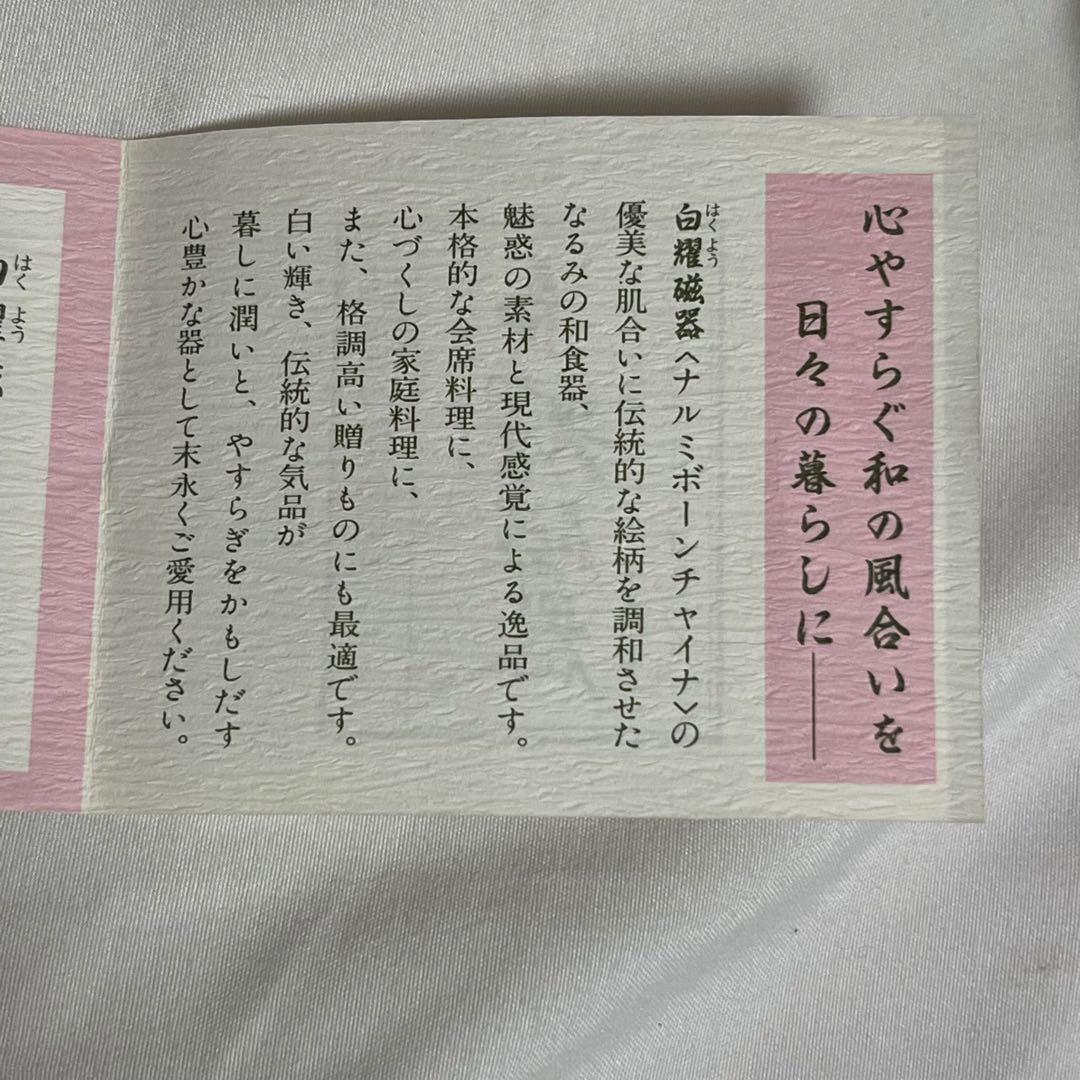 心やすらぐ和の風合いを
日々の暮らしに――
白耀磁器〈ナルミボーンチャイナ〉の
はくよう
優美な肌合いに伝統的な絵柄を調和させた
なるみの和食器、
魅惑の素材と現代感覚による逸品です。
本格的な会席料理に、
心づくしの家庭料理に、
また、格調高い贈りものにも最適です。
白い輝き、伝統的な気品が
暮しに潤いと、やすらぎをかもしだす
心豊かな器として末永くご愛用ください。
はくよう